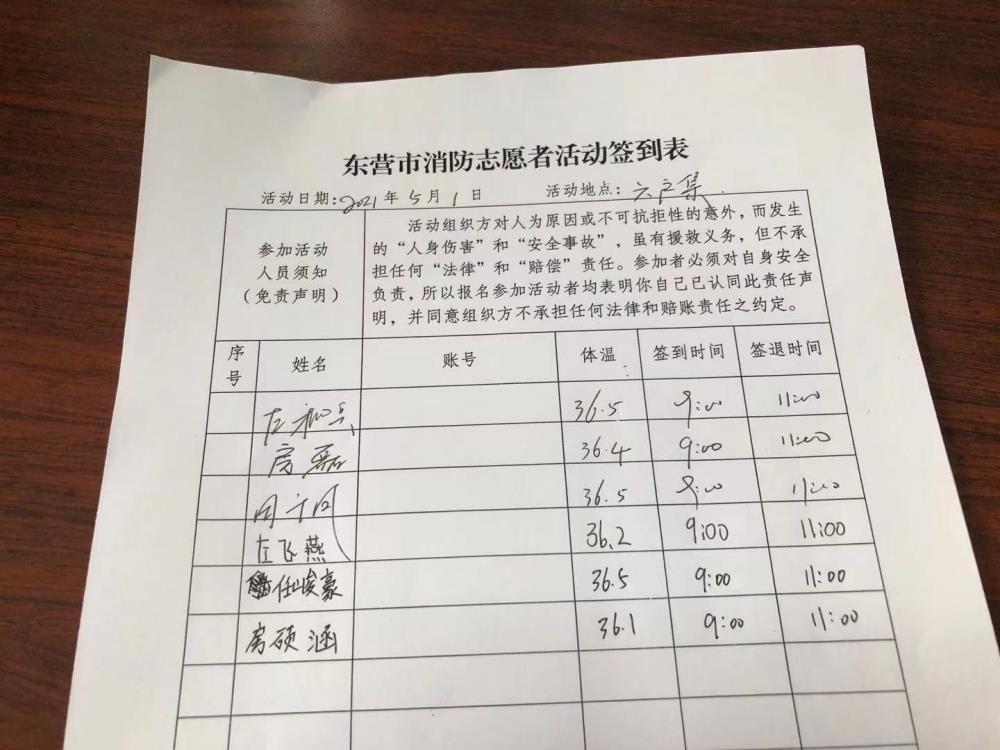 东营市消防志愿者活动签到表
活动日期:2021年5月1日 活动地点:六户集
参加活动
人员须知
(免责声明)
活动组织方对人为原因或不可抗拒性的意外,而发生
的“人身伤害”和“安全事故”,虽有援救义务,但不承
担任何“法律”和“赔偿”责任。参加者必须对自身安全
负责,所以报名参加活动者均表明你自己已认同此责任声
明,并同意组织方不承担任何法律和赔账责任之约定。
序号 姓名 账号 体温 签到时间 签退时间
左 36.5 9:00 11:00
房磊 36.4 9:00 11:00
周 36.5 9:00 11:00
左飞燕 36.2 9:00 11:00
任峻豪 36.5 9:00 11:00
房硕涵 36.1 9:00 11:00